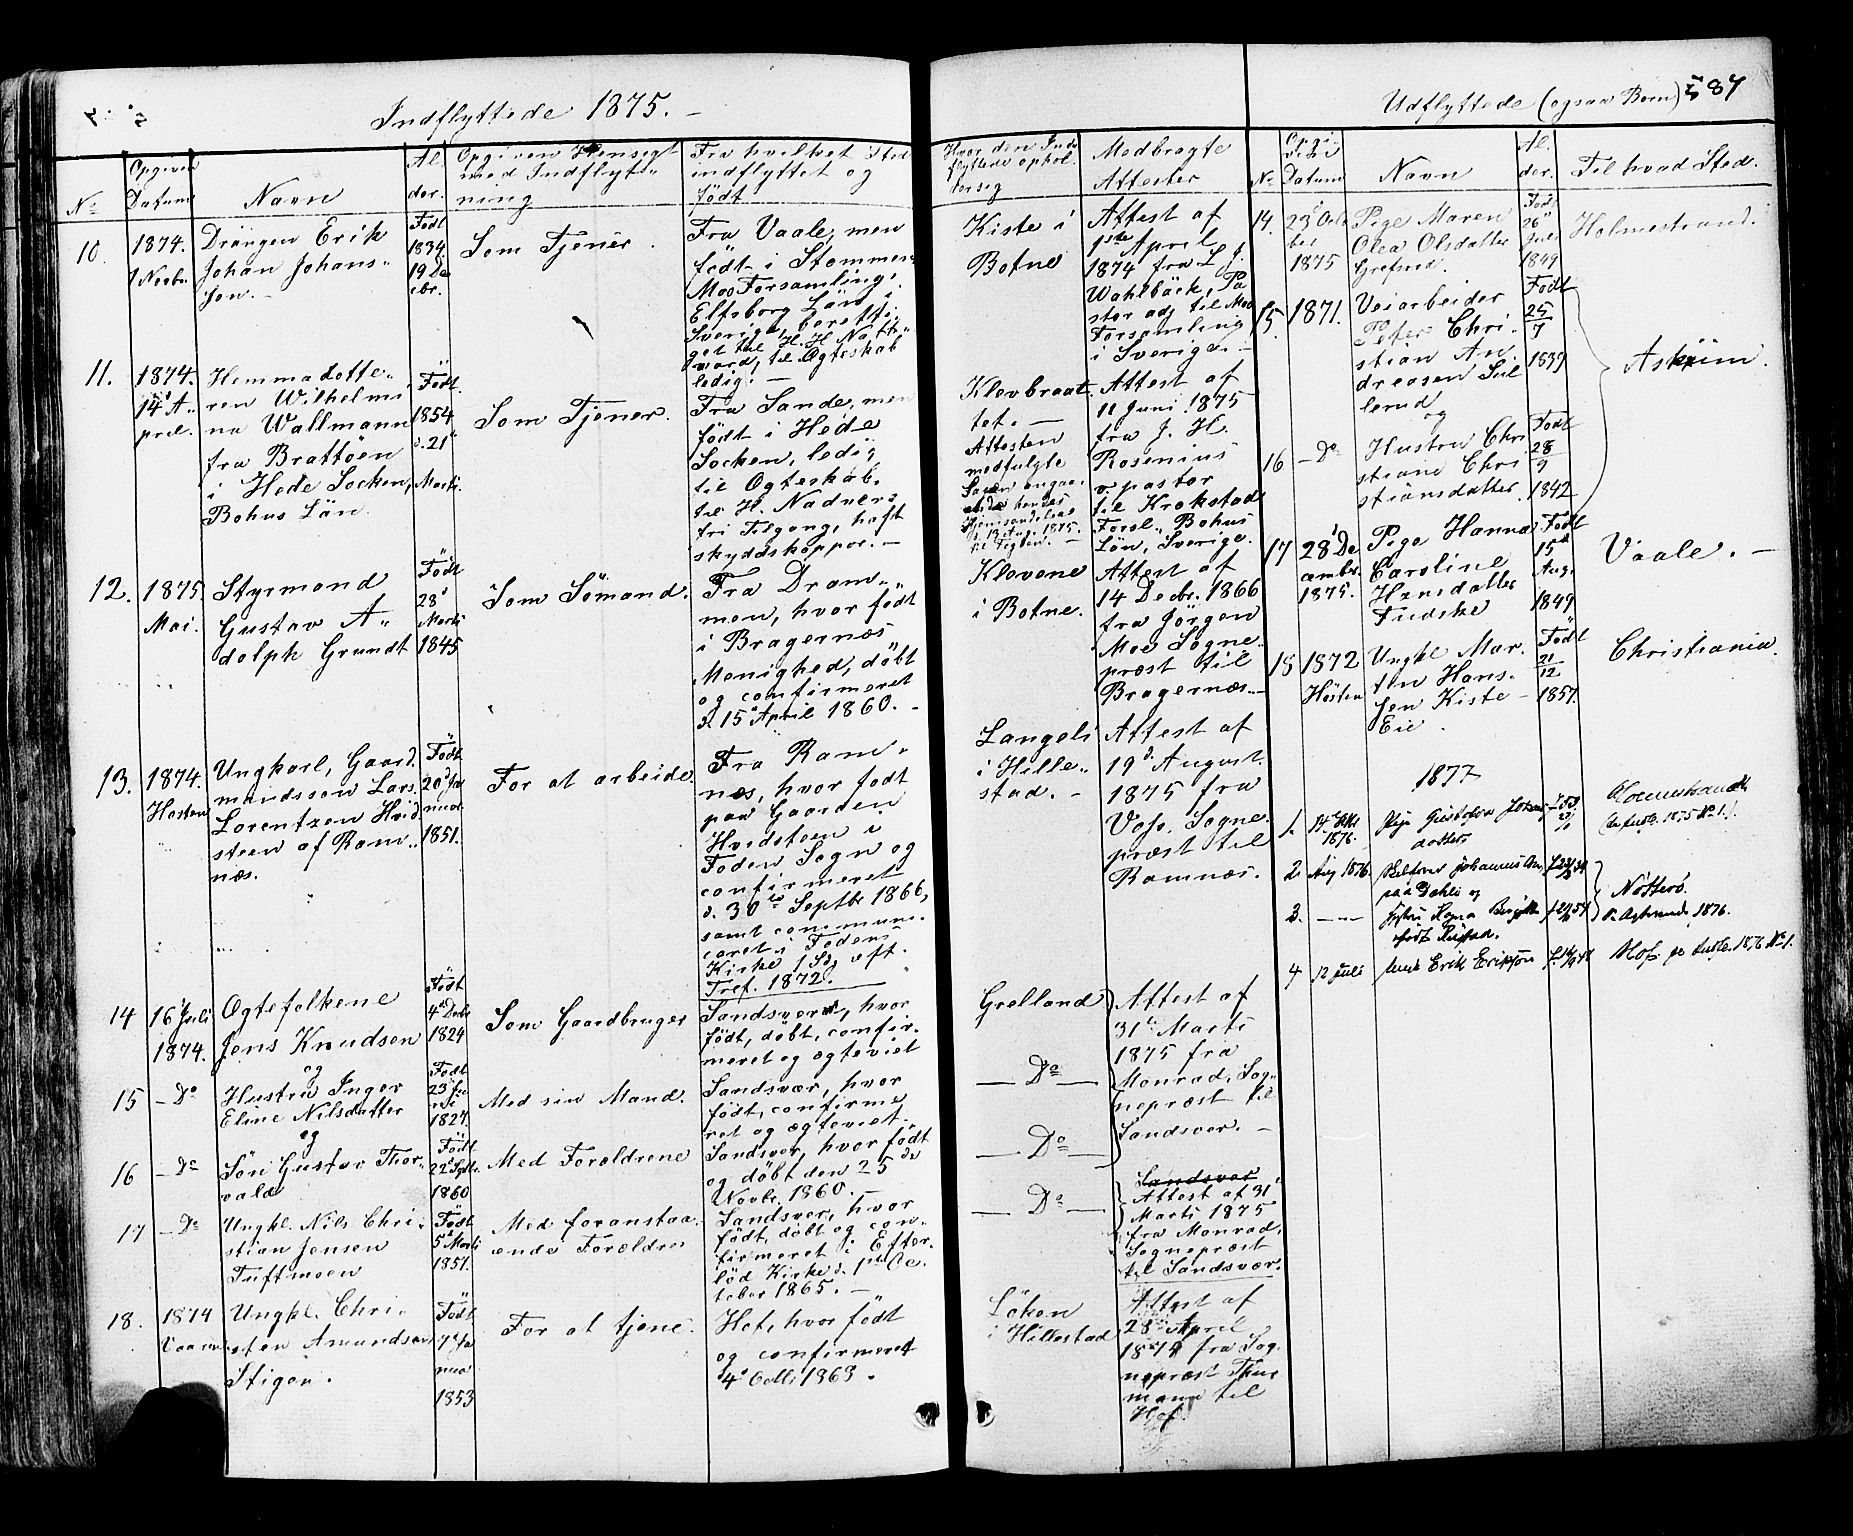 Indflyttede 1875. -
No
Opgiven
Datum
Navn
Al
der.
Opgiven Hensigt
med Indflyt-
ning
Fra hvilket Sted
indflyttet og
født
Hvor den Ind-
flyttede ophol-
der sig
Medbragte
Attester
10.
1874.
1 Novbr.
Drängen Erik
Johan Johans-
son. -
Født
1834.
19 De
cbr.
Som Tjener.
Fra Vaale, men
født i Stommen
Moo Forsamling,
Elfsborg Län i
Sverige, beretti-
get til H. H. Natt-
vard, til Ogteskab
ledig. -
Kiste i
Botne
Attest af
1ste April
1874 fra L. J.
Wahlbäck, Pa
stor adj til Moo
Forsamling
i Sverige. -
11.
1874.
14 A-
pril.
Hemmadotte-
ren Wilhelmi
na Wallmann
fra Brattöen
i Hede Socken,
Bohus Län
Født
1854
d. 21
Marts.
Som Tjener.
Fra Sande, men
født i Hede
Socken, ledig
til Ogteskab,
til H. Nadvers
fri Tilgang, haft
skyddskoppor. -
Klovbraat
tet. -
Attesten
medfulgte
Sagen angaa-
ende hendes
Hjemsendelse
d. 13 Aug. 1875.
til Fogden. -
Attest af
11 Juni 1875
fra J. H.
Rosenius
v. pastor
til Krokstad
Forsl., Bohus
Län, Sverige.
12.
1875
Mai.
Styrmand
Gustav A-
dolph Grundt
Født
28
Marts
1845
Som Sömand.
Fra Dram-
men, hvor født
i Bragernæs
Menighed, døbt
og confirmeret
d. 15 April 1860. -
Klovene
i Botne.
Attest af
14 Decbr. 1866
fra Jørgen
Moe Sogne-
præst til
Bragernæs. -
13.
1874.
Høsten
Ungkarl, Gaard
mandssøn Lars
Lorentzen Hvid
steen af Ram-
næs.
Født
20 Ja
nuar
1851.
For at arbeide.
Fra Ram-
næs, hvor født
paa Gaarden
Hvidsteen i
Foden Sogn og
confirmeret
d. 30te Septbr 1866,
samt commun-
ceret i Fodens
Kirke 1 Sdg. eft.
Tref. 1872.
Langeli
i Hille-
stad. -
Attest af
19d August
1875 fra
Vogt, Sogne-
præst til
Ramnæs.
14
16 Juli
1874.
Ogtefolkene
Jens Knudsen
og
Født
4 Decbr
1824
Som Gaardbruger
Sandsver, hvor
født, døbt, confir-
meret og ægteviet
Grelland
Attest af
31te Marts
1875 fra
Monrad, Sog-
nepræst til
Sandsver. -
15
- Do
Hustru Inger
Eline Nilsdatter
og
Født
1827.
Med sin Mand.
Sandsvær, hvor
født, confirme
ret og ægteviet.
- Do -
16
- Do
Sön Gustav Thor-
vald
Født
22 Septbr.
1860
Med Foreldrene
Sandsver, hvor født
og døbt den 25de
Novbr. 1860. -
- Do -
17
- Do
Ungkl. Nils Chri-
stian Jensen
Tuftmoen
Født
5 Marts
1851.
Med foranstaa-
ende Foreldre
Sandsver, hvor
født, døbt og con-
firmeret i Efter-
lød Kirke d. 1ste Oc-
tober 1865. -
- Do -
Sandsver
Attest af 31
Marts 1875
fra Monrad,
Sognepræst
til Sandsvær.
18.
1874
Vaaren
Ungkl. Chri-
sten Amundsen
Stigen.
Født
7d Ja
nuar
1853
For at tjene.
Hof, hvor født
og confirmeret
4d Octbr 1868.
Löken
i Hillestad
Attest af
28 April
1874 fra Sog-
nepræst Thue
mann til
Hof.
Udflyttede (ogsaa Børn) 587
No
Opgi-
vet
Datum
Navn
Al.
der.
Til hvad Sted.
14.
23 Octo
ber
1875
Pige Maren
Olea Olsdatter
Grefsrud.
Født
26
Juli
1849
Holmestrand.
15.
1871.
Veiarbeider
Peter Chri-
stian An-
dreasen Sul
lerud
og
Født
25/7
1839
Askim.
16
- Do
Hustru Chri
stiane Chri
stiansdatter.
Født
28/9
1842
17
28 De
cember
1875.
Pige Hanna
Caroline
Hansdatter
Fudske
Født
15de
Aug.
1849
Vaale. -
18
1872
Høsten
Ungkl. Mar-
tin Hans-
sen Kiste -
Eie.
Født
21/12
1857.
Christiania.
1877
1.
14 Okt
1876.
Pige Gustafva Johans
datter
Holmestrand
(se Indfl. 1875 No 1.)
2.
Aug 1876
og
Nøtterø.
3.
- -
1876.
4
12 Juli
Erik Erikson
Hof. se Indfl. 1876 No 1.